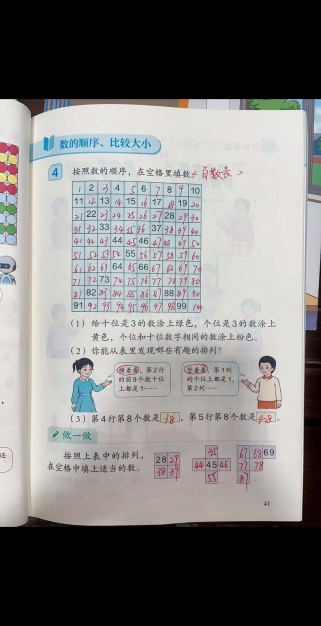 数的顺序、比较大小
4 按照数的顺序，在空格里填数。<百数表>
1 2 3 4 5 6 7 8 9 10
11 12 13 14 15 16 17 18 19 20
21 22 23 24 25 26 27 28 29 30
31 32 33 34 35 36 37 38 39 40
41 42 43 44 45 46 47 48 49 50
51 52 53 54 55 56 57 58 59 60
61 62 63 64 65 66 67 68 69 70
71 72 73 74 75 76 77 78 79 80
81 82 83 84 85 86 87 88 89 90
91 92 93 94 95 96 97 98 99 100
（1）给十位是3的数涂上绿色，个位是3的数涂上
黄色，个位和十位数字相同的数涂上粉色。
（2）你能从表里发现哪些有趣的排列？
横着看，第2行
的前9个数十位
上都是1……
竖着看，第1列
的个位上都是1，
第2列……
（3）第4行第8个数是38，第5行第8个数是48。
做一做
按照上表中的排列，
在空格中填上适当的数。
28 29
38 39
35
44 45 46
55
67 68 69
77 78
87
41